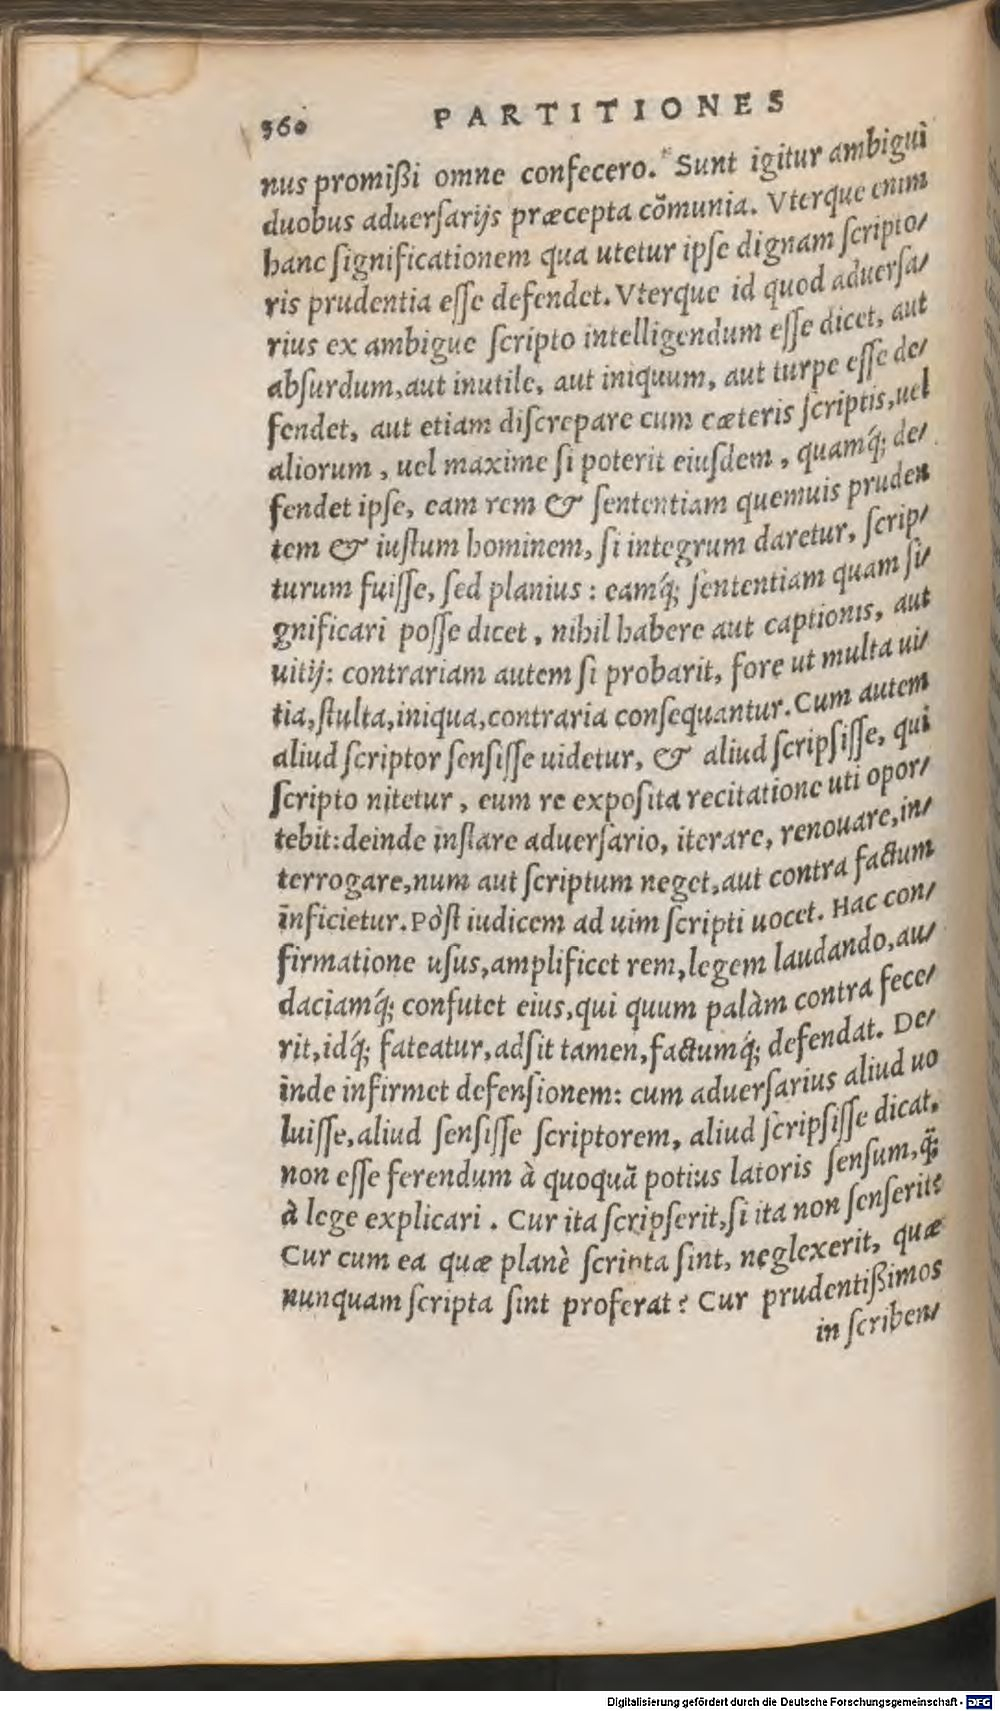 360 PARTITIONES
nus promißi omne confecero. Sunt igitur ambigui
duobus aduerſarijs præcepta cõmunia. Vterque enim
hanc ſignificationem qua utetur ipſe dignam ſcripto/
ris prudentia eſſe defendet. Vterque id quod aduerſa/
rius ex ambigue ſcripto intelligendum eſſe dicet, aut
abſurdum, aut inutile, aut iniquum, aut turpe eſſe de/
fendet, aut etiam diſcrepare cum cæteris ſcriptis, uel
aliorum, uel maxime ſi poterit eiuſdem, quamq́; de/
fendet ipſe, eam rem & ſententiam quemuis pruden
tem & iuſtum hominem, ſi integrum daretur, ſcrip/
turum fuiſſe, ſed planius: eamq́; ſententiam quam ſi/
gnificari poſſe dicet, nihil habere aut captionis, aut
uitij: contrariam autem ſi probarit, fore ut multa ui/
tia, ſtulta, iniqua, contraria conſequantur. Cum autem
aliud ſcriptor ſenſiſſe uidetur, & aliud ſcripſiſſe, qui
ſcripto nitetur, eum re expoſita recitatione uti opor/
tebit: deinde inſtare aduerſario, iterare, renouare, in/
terrogare, num aut ſcriptum neget, aut contra factum
inficietur. Pòſt iudicem ad uim ſcripti uocet. Hac con/
firmatione uſus, amplificet rem, legem laudando, au/
daciamq́; confutet eius, qui quum palàm contra fece/
rit, idq́; fateatur, adſit tamen, factumq́; defendat. De/
inde infirmet defenſionem: cum aduerſarius aliud uo
luiſſe, aliud ſenſiſſe ſcriptorem, aliud ſcripſiſſe dicat,
non eſſe ferendum à quoquã potius latoris ſenſum, q̈̃;
à lege explicari. Cur ita ſcripſerit, ſi ita non ſenſerit?
Cur cum ea quæ planè ſcripta ſint, neglexerit, quæ
nunquam ſcripta ſint proferat? Cur prudentißimos
in ſcriben/
Digitalisierung gefördert durch die Deutsche Forschungsgemeinschaft - DFG